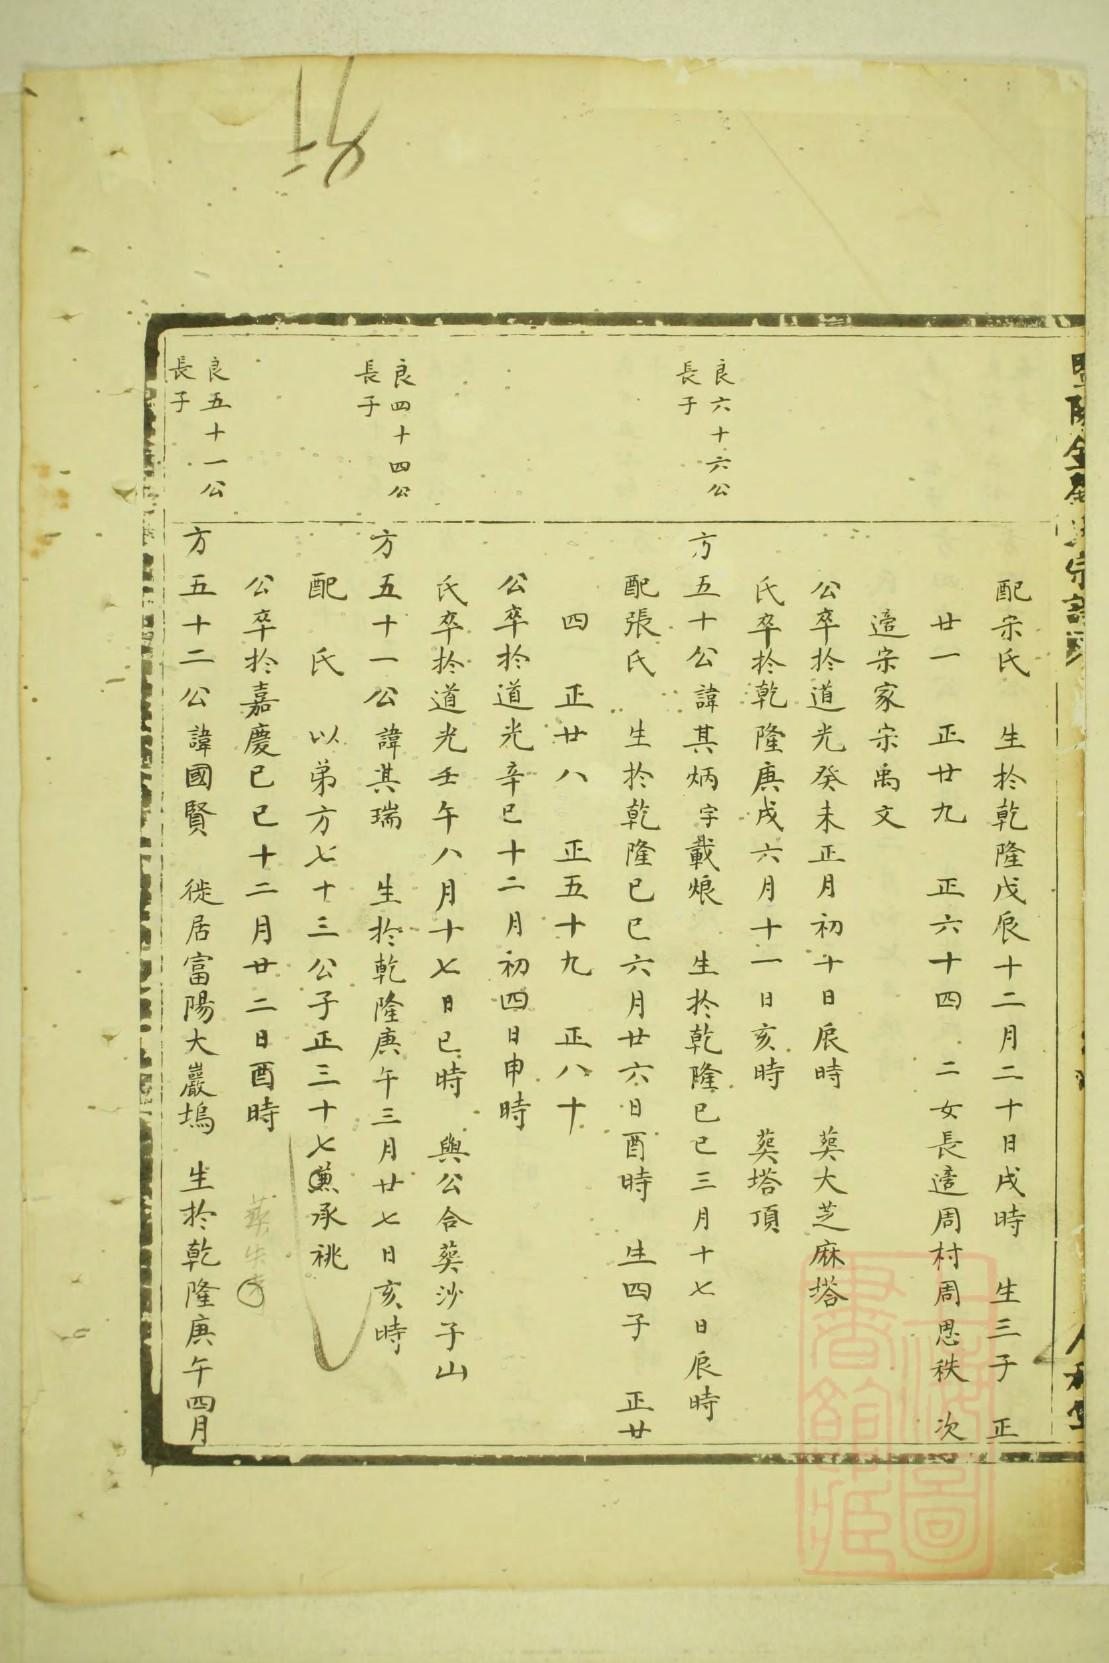 配宗氏　生於乾隆戊辰十二月二十日戌時　生三子　正
廿一　正廿九　正六十四　二女長適周村周思秩　次
適宗家宗禹文
公卒於道光癸未正月初十日辰時　葬大芝麻塔
氏卒於乾隆庚戌六月十一日亥時　葬塔頂
良六十六公
長子
方五十公諱其炳字載烺　生於乾隆己巳三月十七日辰時
配張氏　生於乾隆己巳六月廿六日酉時　生四子　正廿
四　正廿八　正五十九　正八十
公卒於道光辛巳十二月初四日申時
氏卒於道光壬午八月十七日巳時　與公合葬沙子山
良四十四公
長子
方五十一公諱其瑞　生於乾隆庚午三月廿七日亥時
配　氏　以弟方七十三公子正三十七兼承祧
公卒於嘉慶己巳十二月廿二日酉時
良五十一公
長子
方五十二公諱國賢　徙居富陽大巖塢　生於乾隆庚午四月
上海圖
書館藏